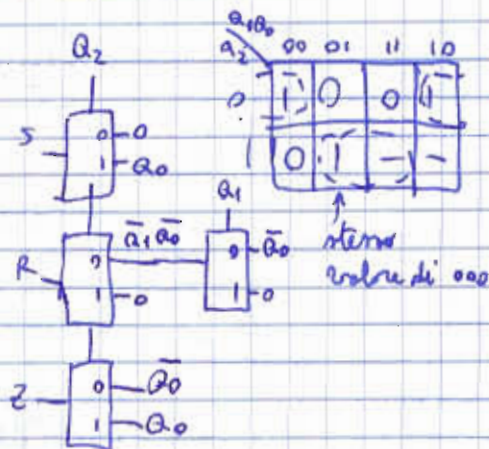 Q₂
S 0 0
1 Q₀
R 0 Q̄₁ Q̄₀
1 0
Q₁
0 Q̄₀
1 0
Z 0 Q̄₀
1 Q₀
Q₁Q₀ 00 01 11 10
Q₂
0 1 0 0 1
1 0 1 - -
stesso
valore di 000